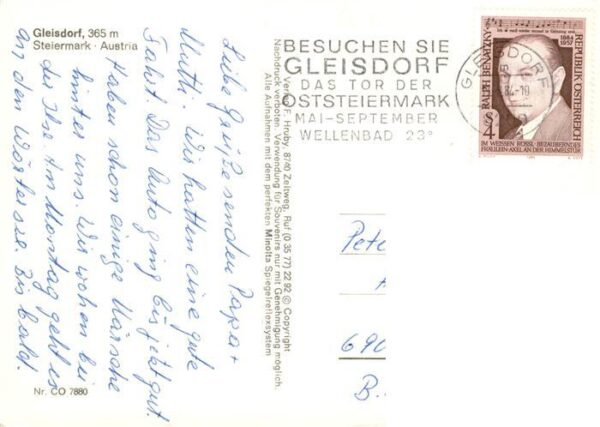 Gleisdorf, 365 m
Steiermark · Austria
Liebe Grüße senden Papa +
Mutti. Wir hatten eine gute
Fahrt. Das Auto ging bis jetzt gut.
Haben schon einige Märsche
hinter uns. Wir wohnen bei
der Ilse. Am Montag geht es
an den Wörtersee. Bis bald.
Nr. CO 7880
Verlag F. Hruby, 8740 Zeltweg, Ruf (0 35 77) 22 92 © Copyright
Nachdruck verboten. Verwendung für Souvenirs nur mit Genehmigung möglich.
Alle Aufnahmen mit dem perfekten Minolta Spiegelreflexsystem
BESUCHEN SIE
GLEISDORF
DAS TOR DER
OSTSTEIERMARK
MAI-SEPTEMBER
WELLENBAD 23°
GLEISDORF
RALPH BENATZKY
1884
1957
REPUBLIK ÖSTERREICH
S 4
IM WEISSEN RÖSSL · BEZAUBERNDES
FRÄULEIN · AXEL AN DER HIMMELSTÜR
Pete
690
B.